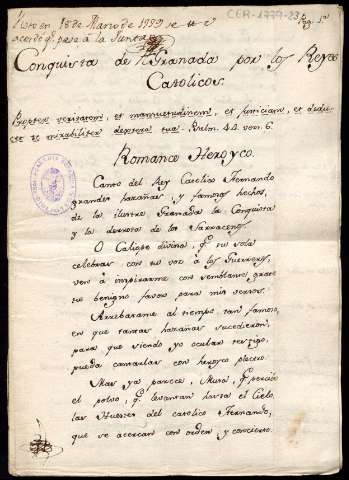 Visto en 18 de Marzo de 1779 se
acordó q.e pase à la Junta
CER-1779-23
Pag. 1.
Conquista de Granada por los Reyes
Catolicos.
Propter veritatem, et mansuetudinem, et justiciam, et deducet te mirabiliter dextera tua. Psalm. 44. vers. 6.
Romance Heroyco.
Canto del Rey Catolico Fernando
grandes hazañas, y famosos hechos,
de la ilustre Granada la Conquista
y la derrota de los Sarracenos.
O Caliope divina, q.e tu sola
celebras con tu voz à los Guerreros,
ven à inspirarme con semblante grato
tu benigno favor para mis versos.
Arrebatame al tiempo tan famoso,
en que tantas hazañas sucedieron,
para que siendo yo ocular testigo,
pueda cantarlas con heroyco plectro.
Mas ya parece, Musa, q.e percibo
el polvo, q.e levantan hasta el Cielo
las Huestes del catolico Fernando,
que se acercan con orden, y concierto.